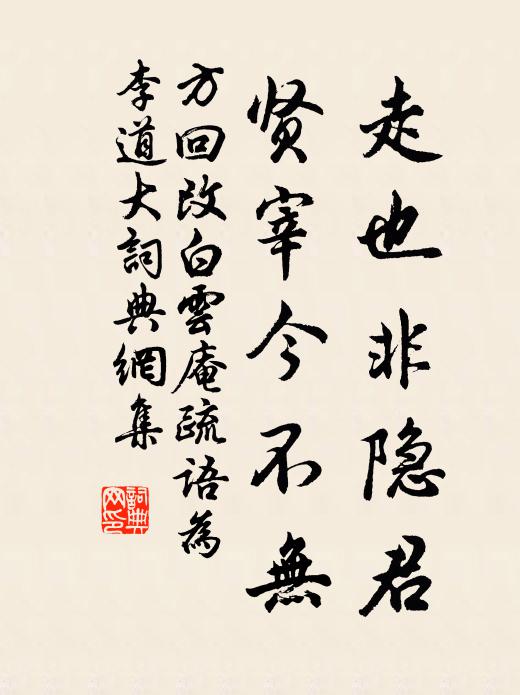 走也非隐君
贤宰今不無
方回改白雲庵疏語為
李道大詞典網集
詞典网印